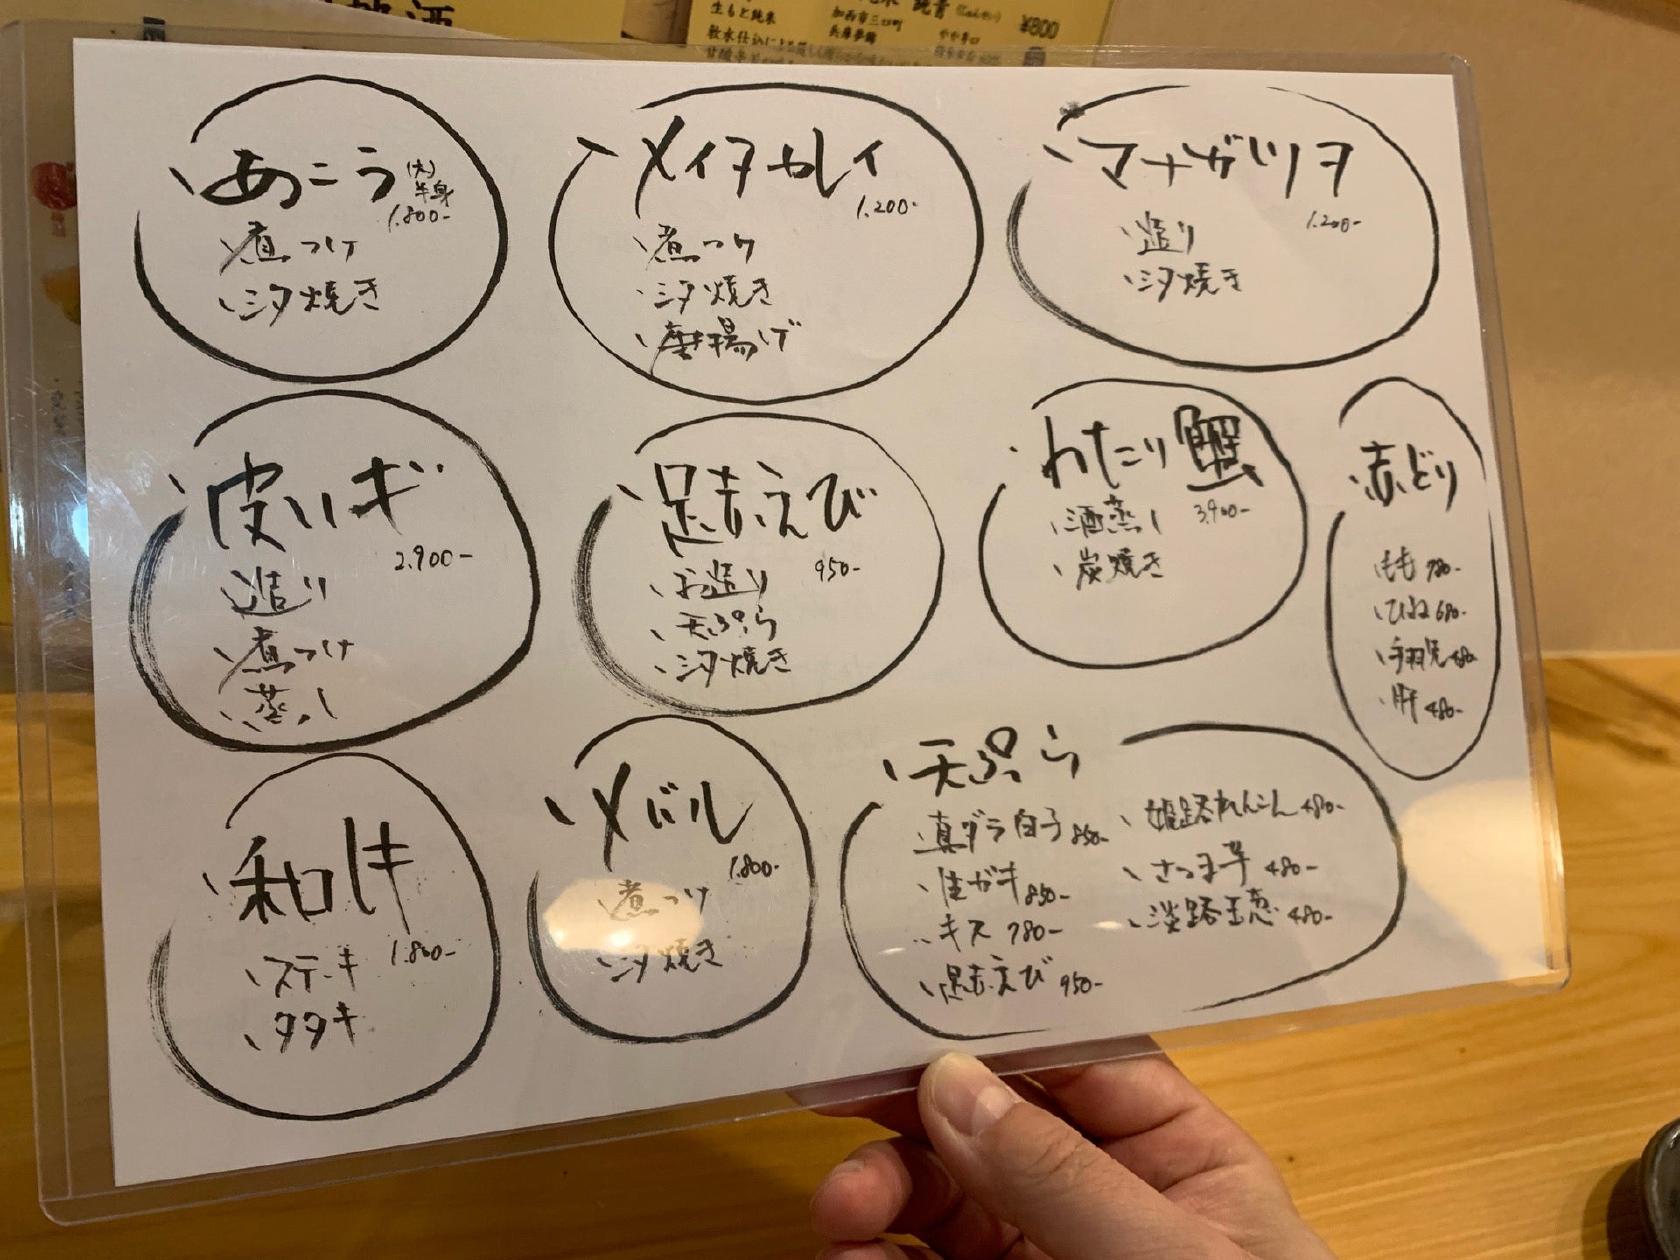 生もと純米
加西市三口町
兵庫夢錦
やや辛口
¥800
あこう (大)半身
1.800-
煮つけ
汐焼き
メイタカレイ
1.200-
煮つけ
汐焼き
唐揚げ
マナガツヲ
1.200-
造り
汐焼き
皮ハギ
2.900-
造り
煮つけ
蒸し
足赤えび
950-
お造り
天ぷら
汐焼き
わたり蟹
3.900-
酒蒸し
炭焼き
赤どり
もも 780-
ひね 680-
手羽先 480-
肝 480-
和牛
1.800-
ステーキ
タタキ
メバル
1.800-
煮つけ
汐焼き
天ぷら
真ダラ白子 850-
生ガキ 850-
キス 780-
足赤えび 950-
姫路れんこん 480-
さつま芋 480-
淡路玉葱 480-